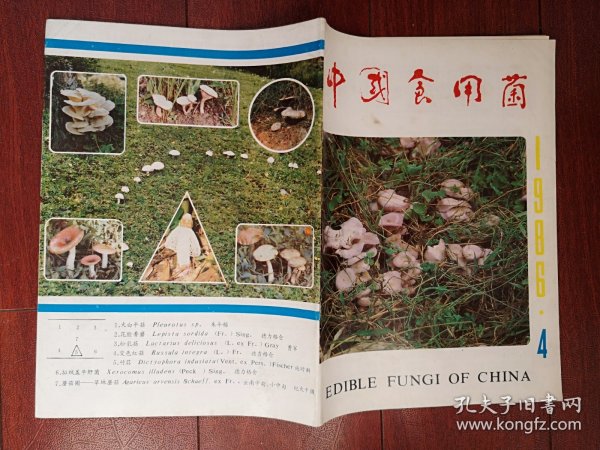 中国食用菌
1986·4
EDIBLE FUNGI OF CHINA
1 2 3
7
4 5 6
1.大白平菇 Pleurotus sp.
2.花脸香蘑 Lepista sordida (Fr.) Sing.
3.松乳菇 Lactarius deliciosus (L. ex Fr.) Gray
4.变色红菇 Russula integra (L.) Fr.
5.竹荪 Dictyophora indusiata (Vent. ex Pers.) Fischer
6.拟绒盖牛肝菌 Xerocomus illudens (Peck) Sing.
7.蘑菇圈——草地蘑菇 Agaricus arvensis Schaeff. ex Fr.
孔夫子旧书网
www.kongfz.com